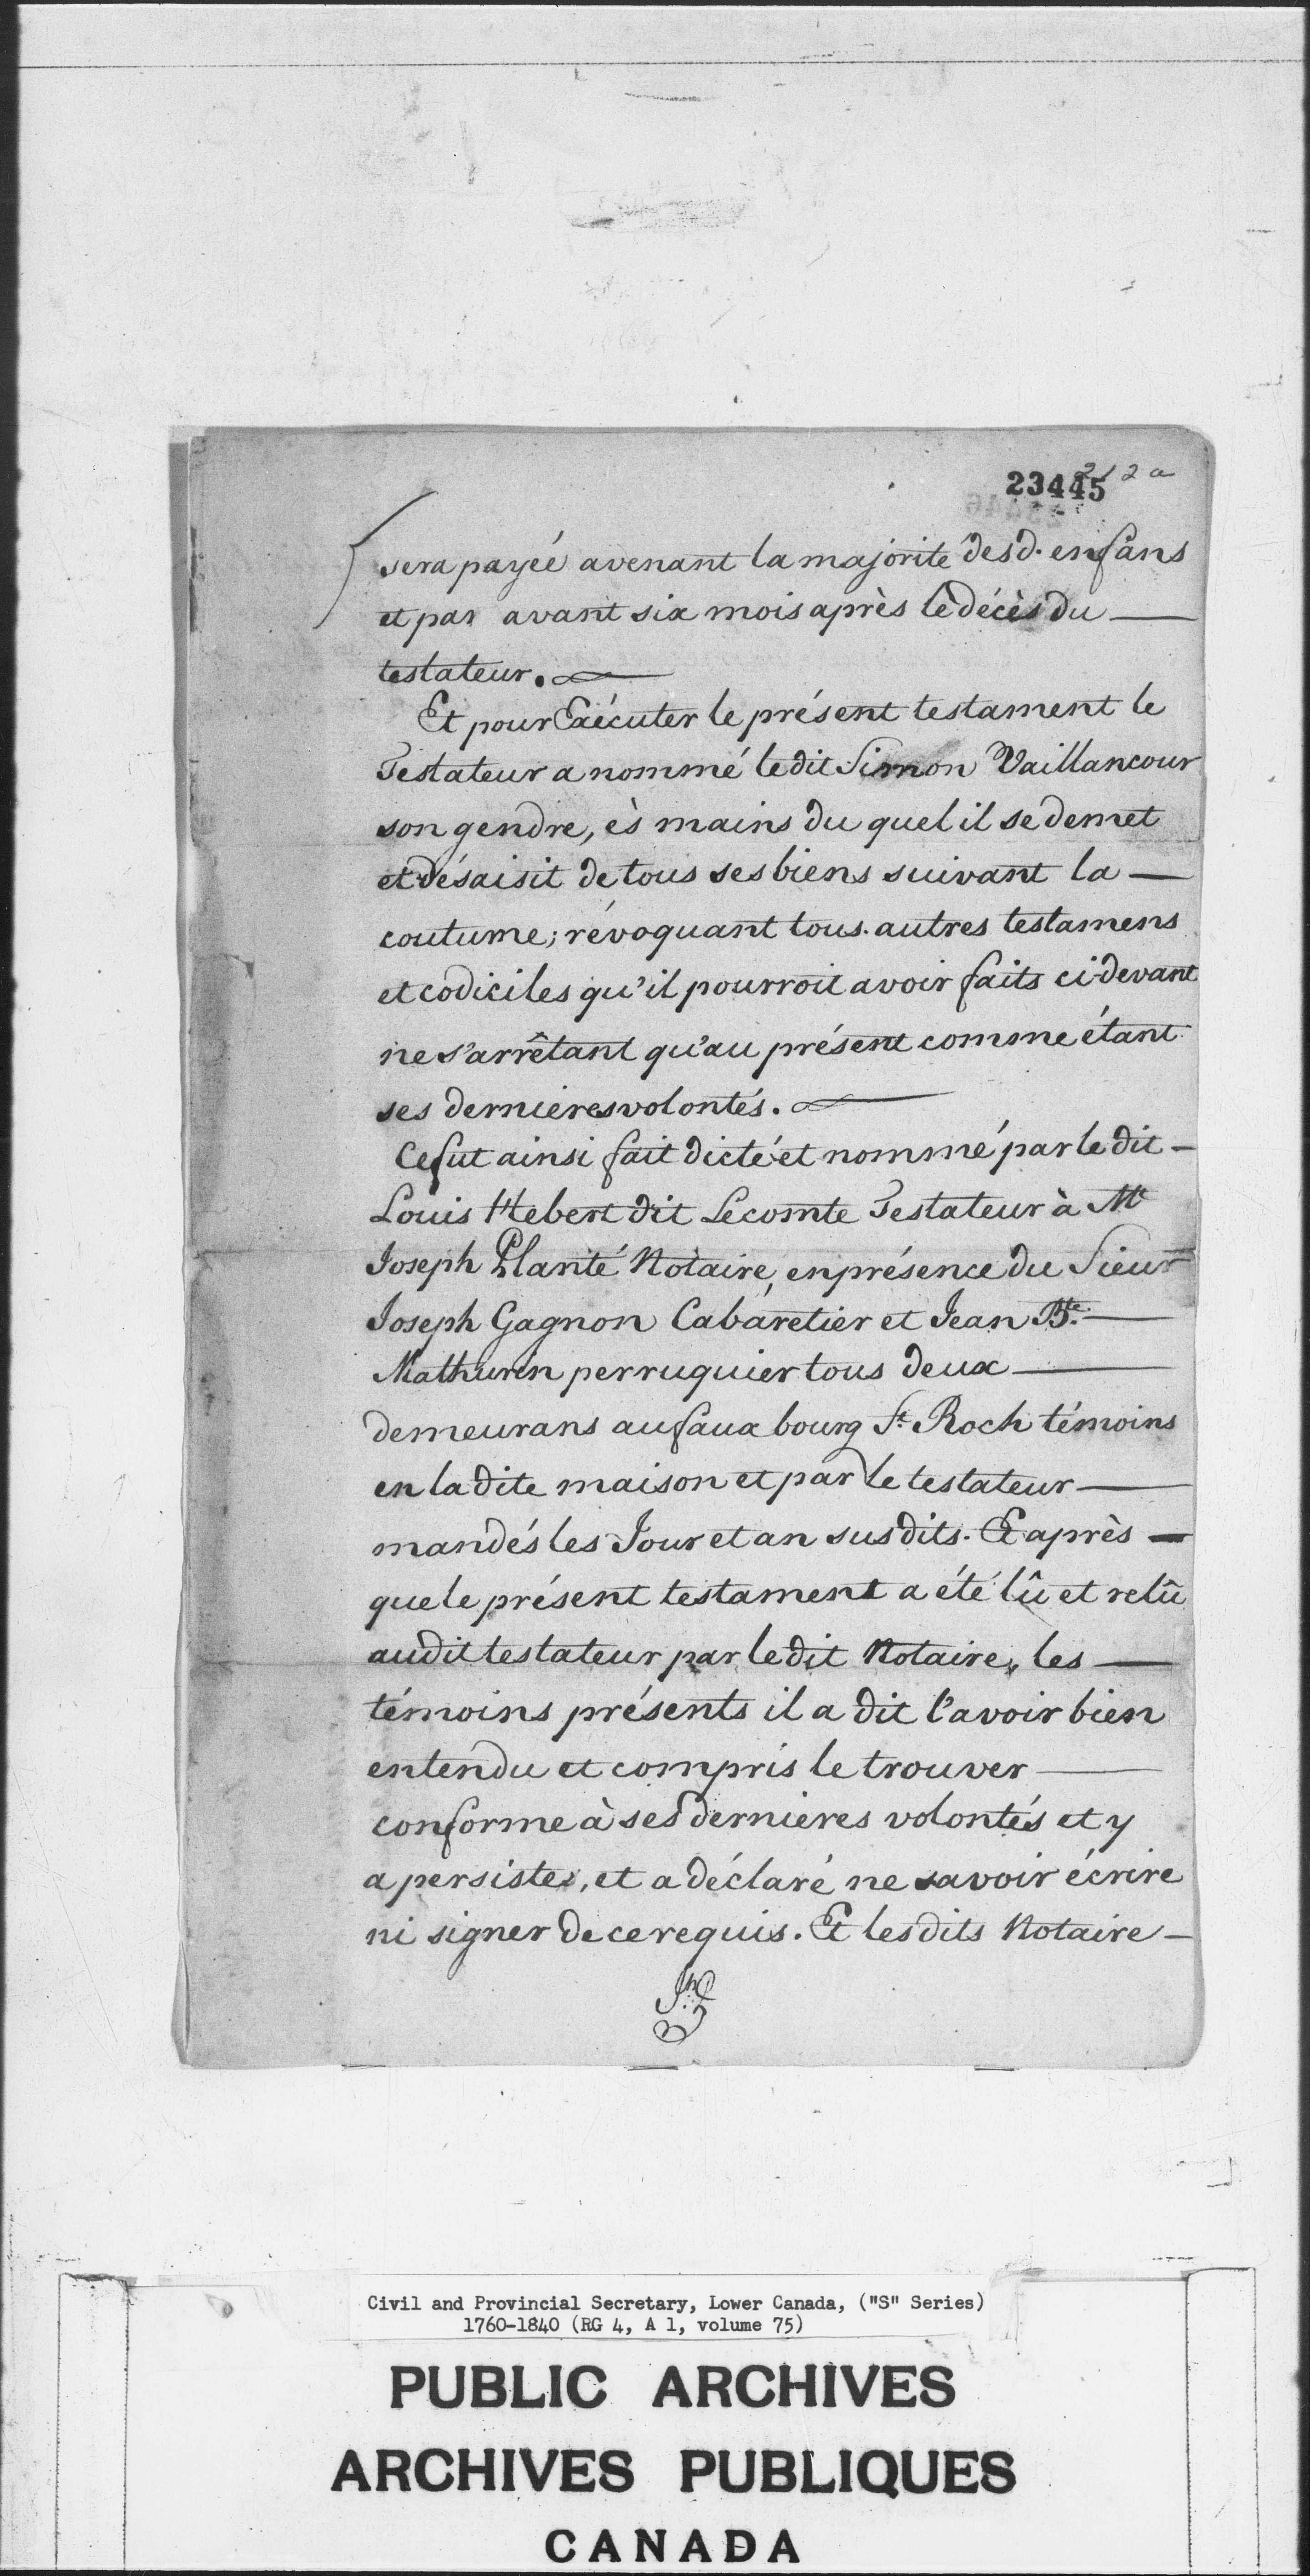 23445
212a
sera payée avenant la majorité desd. enfans
et par avant six mois après le décès du —
testateur.
Et pour Exécuter le présent testament le
Testateur a nommé ledit Simon Vaillancour
son gendre, ès mains du quel il se demet
et désaisit de tous ses biens suivant la —
coutume; révoquant tous autres testamens
et codiciles qu'il pourroit avoir faits ci devant
ne s'arrêtant qu'au présent comme étant
ses dernieres volontés.
Ce fut ainsi fait dicté et nommé par le dit —
Louis Hebert dit Lecomte Testateur à Me
Joseph Planté Notaire, en présence du Sieur
Joseph Gagnon Cabaretier et Jean Bte. —
Mathurin perruquier tous deux —
demeurans au faux bourg St. Roch témoins
en la dite maison et par le testateur —
mandés les Jour et an susdits. Et après —
que le présent testament a été lû et relû
audit testateur par le dit Notaire, les —
témoins présents il a dit l'avoir bien
entendu et compris le trouver —
conforme à ses dernieres volontés et y
a persisté, et a déclaré ne savoir écrire
ni signer de ce requis. Et lesdits Notaire —
Civil and Provincial Secretary, Lower Canada, ("S" Series)
1760-1840 (RG 4, A 1, volume 75)
PUBLIC ARCHIVES
ARCHIVES PUBLIQUES
CANADA